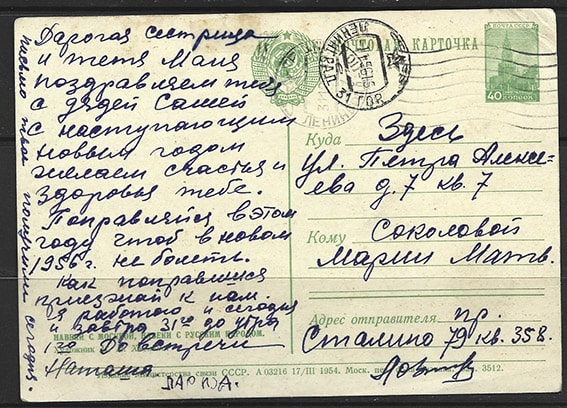 Дарогая сестрица
и тетя Маня
поздравляем тебя
с дядей Сашей
с наступающим
новым годом
желаем счастья и
здоровья тебе.
Поправляйся в этом
году чтоб в новом
1956 г. не болеть.
Как поправишся
приезжай к нам.
Я работаю и сегодня
и завтра 31го до утра
До встречи
Наташа
письмо твое получили сегодня.
ПОЧТОВАЯ КАРТОЧКА
ПОЧТА СССР
40 КОПЕЕК
ЛЕНИНГРАД
31 ГОР.
ЛЕНИН
Куда Здесь
ул. Петра Алексе-
ева д. 7 кв. 7
Кому Соколовой
Марии Матв.
Адрес отправителя пр.
Сталина 79 кв. 358.
НАВЕКИ С МОСКВОЙ, НАВЕКИ С РУССКИМ НАРОДОМ.
Министерства связи СССР. А 03216 17/III 1954. Моск. 3512.